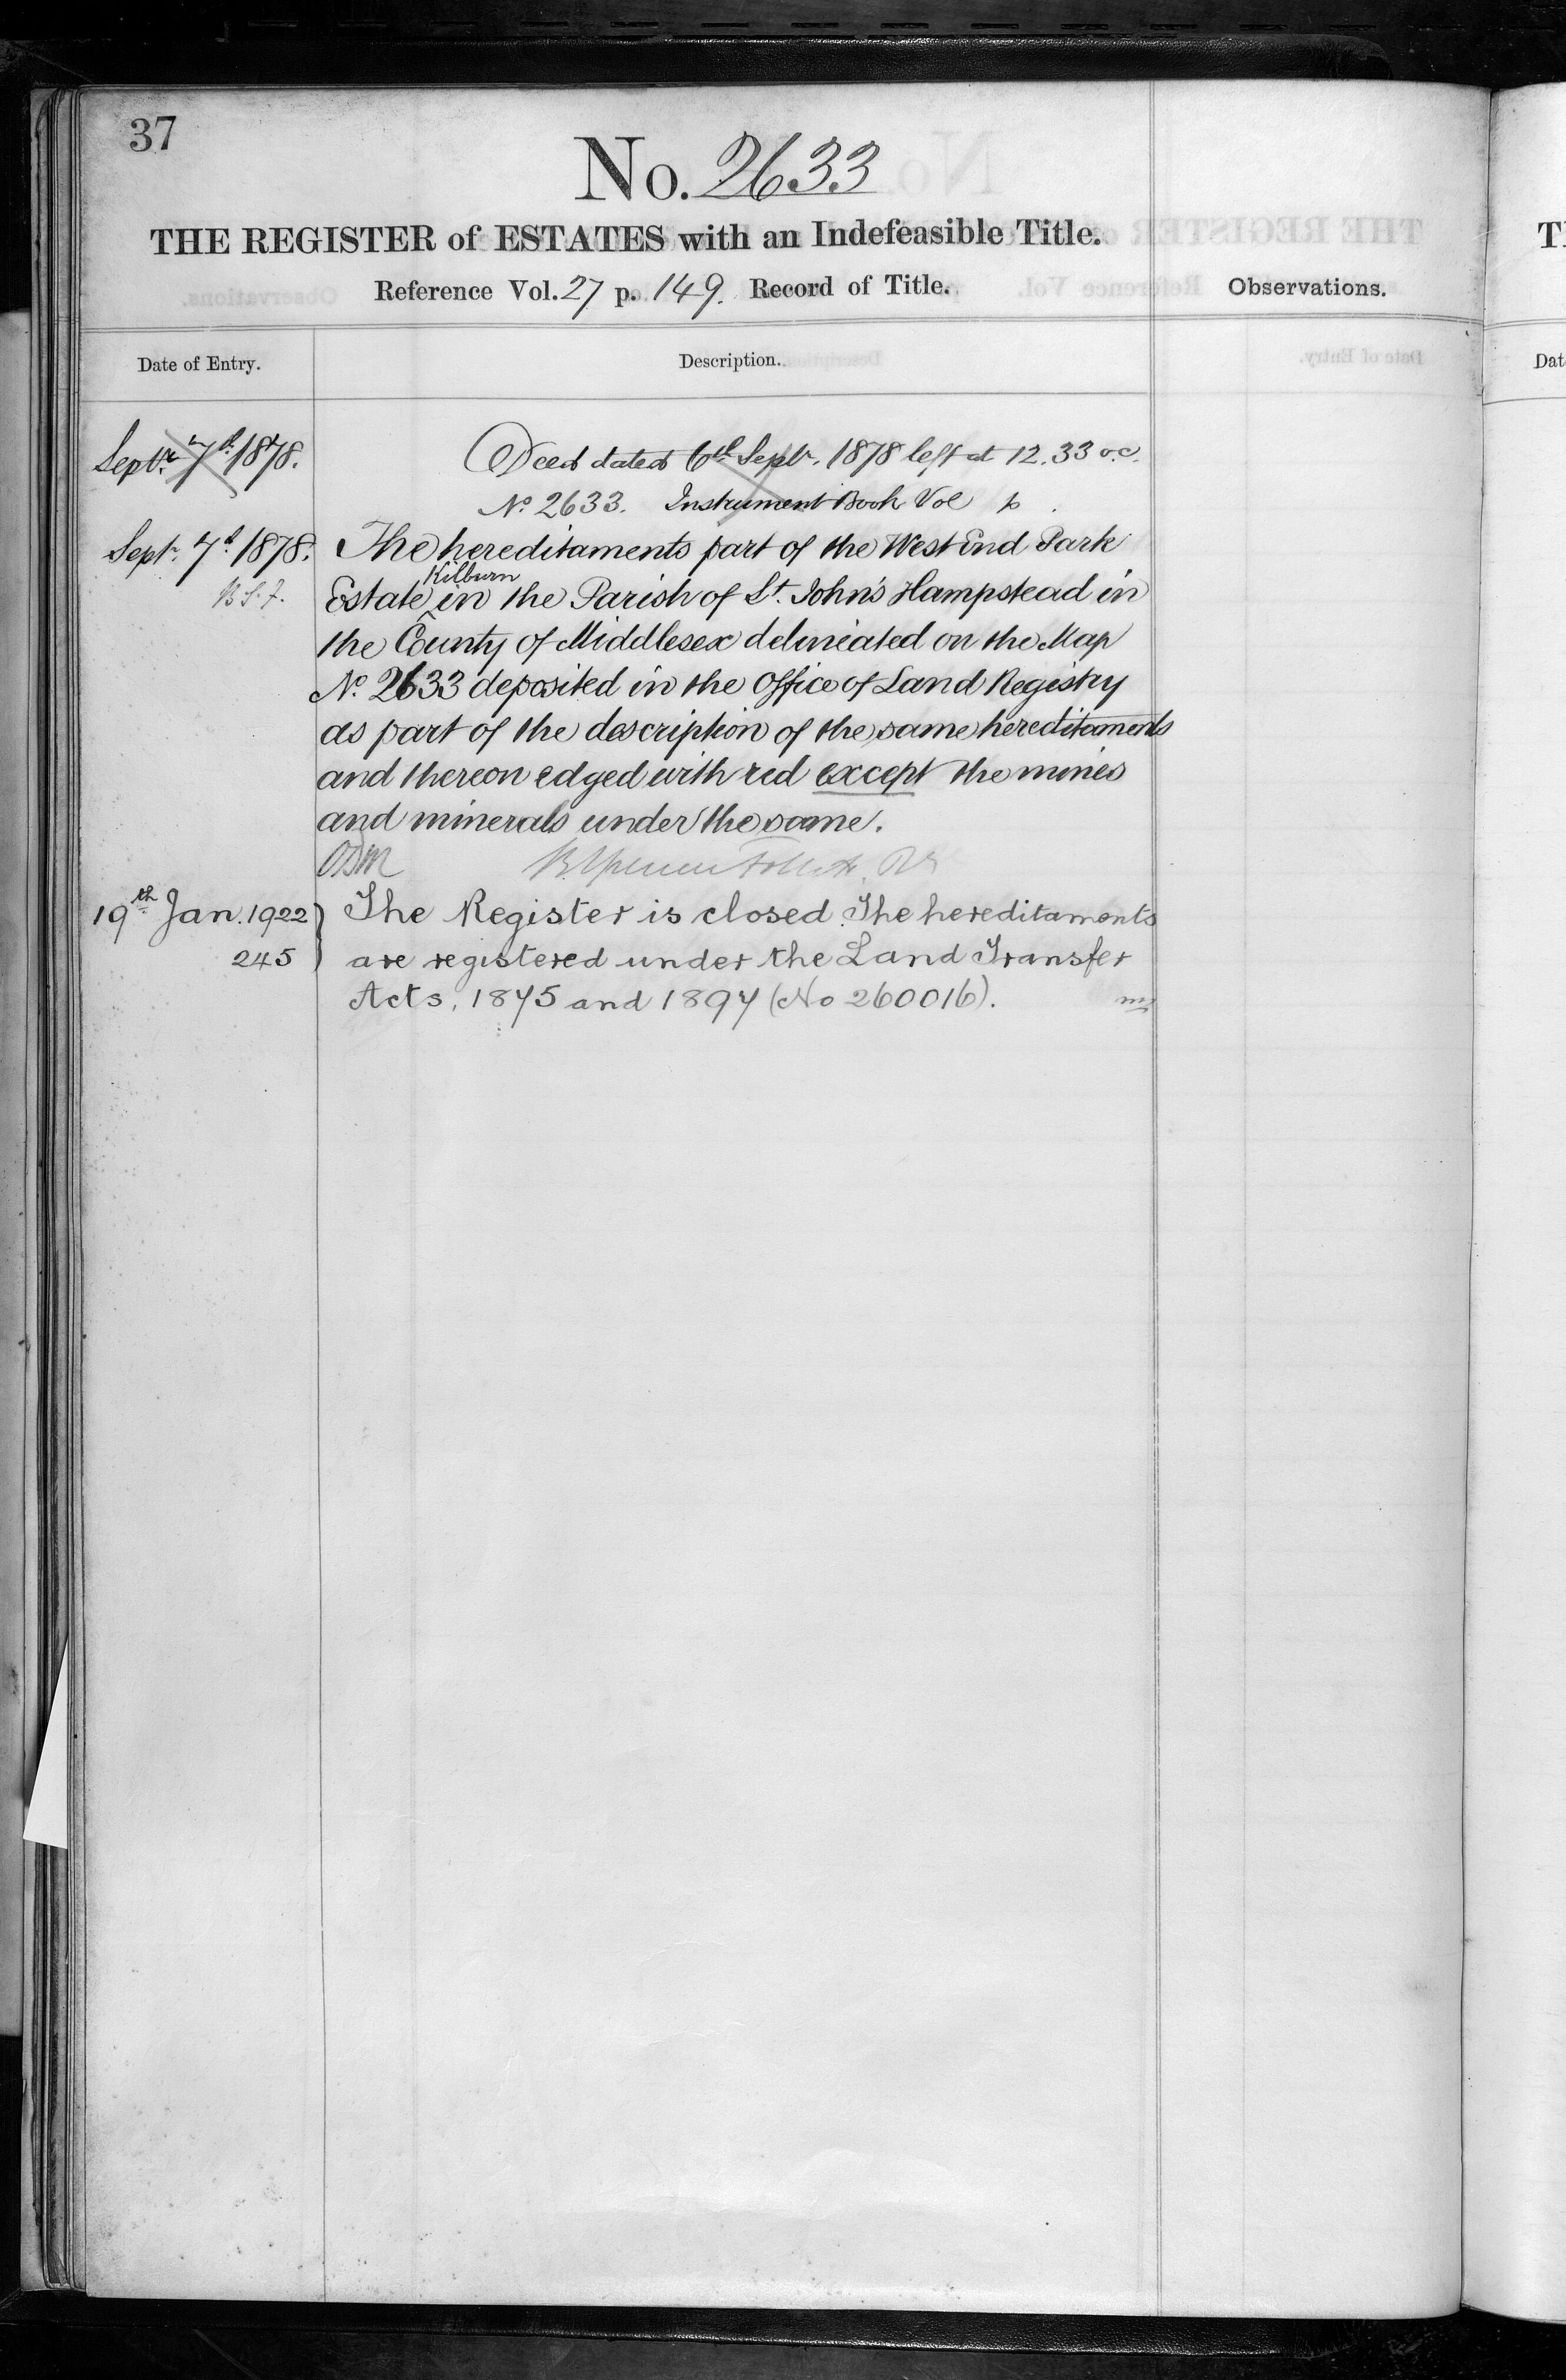 37
No. 2633
THE REGISTER of ESTATES with an Indefeasible Title.
Reference Vol. 27 p. 149. Record of Title.
Observations.
Date of Entry.
Description.
Septr. 7th 1878.
Deed dated 6th Septr. 1878 left at 12.33 o.c.
No. 2633. Instrument Book Vol p .
Septr. 7th 1878.
The hereditaments part of the West End Park
B S. F.
Kilburn
Estate ^ in the Parish of St. John's Hampstead in
the County of Middlesex delineated on the Map
No. 2633 deposited in the Office of Land Registry
as part of the description of the same hereditaments
and thereon edged with red except the mines
and minerals under the same.
19th Jan. 1922
The Register is closed. The hereditaments
245
are registered under the Land Transfer
Acts, 1875 and 1897 (No 260016).
T
Dat